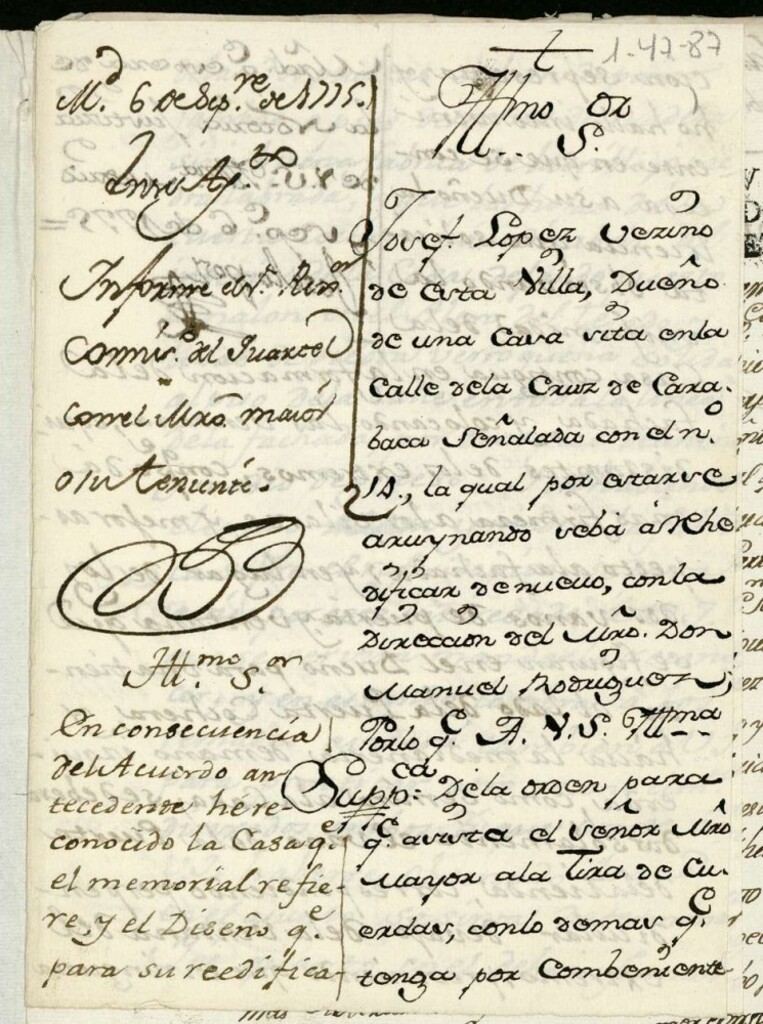 1-47-87
M.d 6 de Sep.re de 1775.
En su Ay.to
Informe el S.r Rex.or
Comis.o del Quartel
con el Mro. maior
o su teniente.
Ill.mo S.or
En consecuencia
del Acuerdo an-
tecedente hé re-
conocido la Casa q.e
el memorial refie-
re, y el Diseño q.e
para su reedifica-
Yllmo Sor
Josef Lopez vezino
de esta Villa, Dueño
de una Casa sita en la
Calle de la Cruz de Cara-
baca Señalada con el n.o
14., la qual por estarse
arruynando se ba á rehe
dificar de nueuo, con la
Direccion del Mro. Don
Manuel Rodriguez,
Por lo q.e A. V. S. Yllma
Supp.ca De la orden para
q.e asista el señor Mro
Mayor a la Tira de Cu-
erdas, con lo demas q.e
tenga por Combeniente